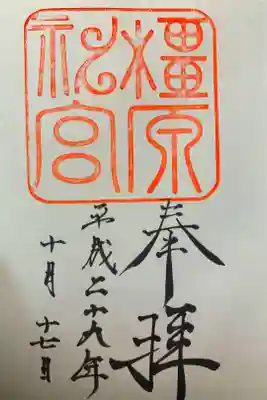 橿原
神宮
奉拝
平成二十九年
十月十七日